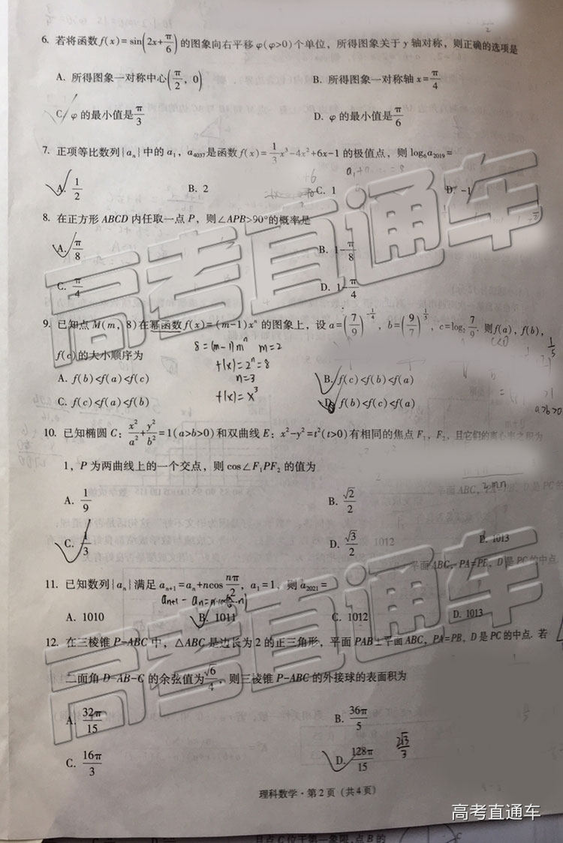 6. 若将函数 f(x)=sin(2x+π/6) 的图象向右平移 φ(φ>0) 个单位，所得图象关于 y 轴对称，则正确的选项是
A. 所得图象一对称中心(π/2, 0)
B. 所得图象一对称轴 x=π/4
C. φ 的最小值是 π/3
D. φ 的最小值是 π/6
7. 正项等比数列{aₙ}中的 a₁，a₄₀₃₇是函数 f(x)=1/3x³-4x²+6x-1 的极值点，则 log₆a₂₀₁₉=
A. 1/2
B. 2
C. 1
D. -1
8. 在正方形 ABCD 内任取一点 P，则∠APB>90°的概率是
A. π/8
B. 1-π/8
C. π/4
D. 1-π/4
9. 已知点 M(m，8)在幂函数 f(x)=(m-1)xⁿ 的图象上，设 a=(7/9)，b=(9/7)，c=log₂7/9，则 f(a)，f(b)，
8=(m-1)mⁿ m=2
f(c)的大小顺序为
f(x)=2ⁿ=8
n=3
f(x)=x³
A. f(b)<f(a)<f(c)
B. f(c)<f(b)<f(a)
C. f(c)<f(a)<f(b)
D. f(b)<f(c)<f(a)
a>b>0
10. 已知椭圆 C：x²/a²+y²/b²=1(a>b>0)和双曲线 E：x²-y²=t²(t>0)有相同的焦点 F₁，F₂，且它们的离心率之积为
1，P 为两曲线上的一个交点，则 cos∠F₁PF₂ 的值为
A. 1/9
B. √2/2
C. 1/3
D. √3/2
11. 已知数列{aₙ}满足 aₙ₊₁=aₙ+ncos nπ/2，a₁=1，则 a₂₀₂₁=
A. 1010
B. 1011
C. 1012
D. 1013
12. 在三棱锥 P-ABC 中，△ABC 是边长为 2 的正三角形，平面 PAB⊥平面 ABC，PA=PB，D 是 PC 的中点. 若
二面角 D-AB-C 的余弦值为 √6/4，则三棱锥 P-ABC 的外接球的表面积为
A. 32π/15
B. 36π/5
C. 16π/3
D. 128π/15
2√3/3
理科数学·第 2 页（共 4 页）
高考直通车
高考直通车
高考直通车